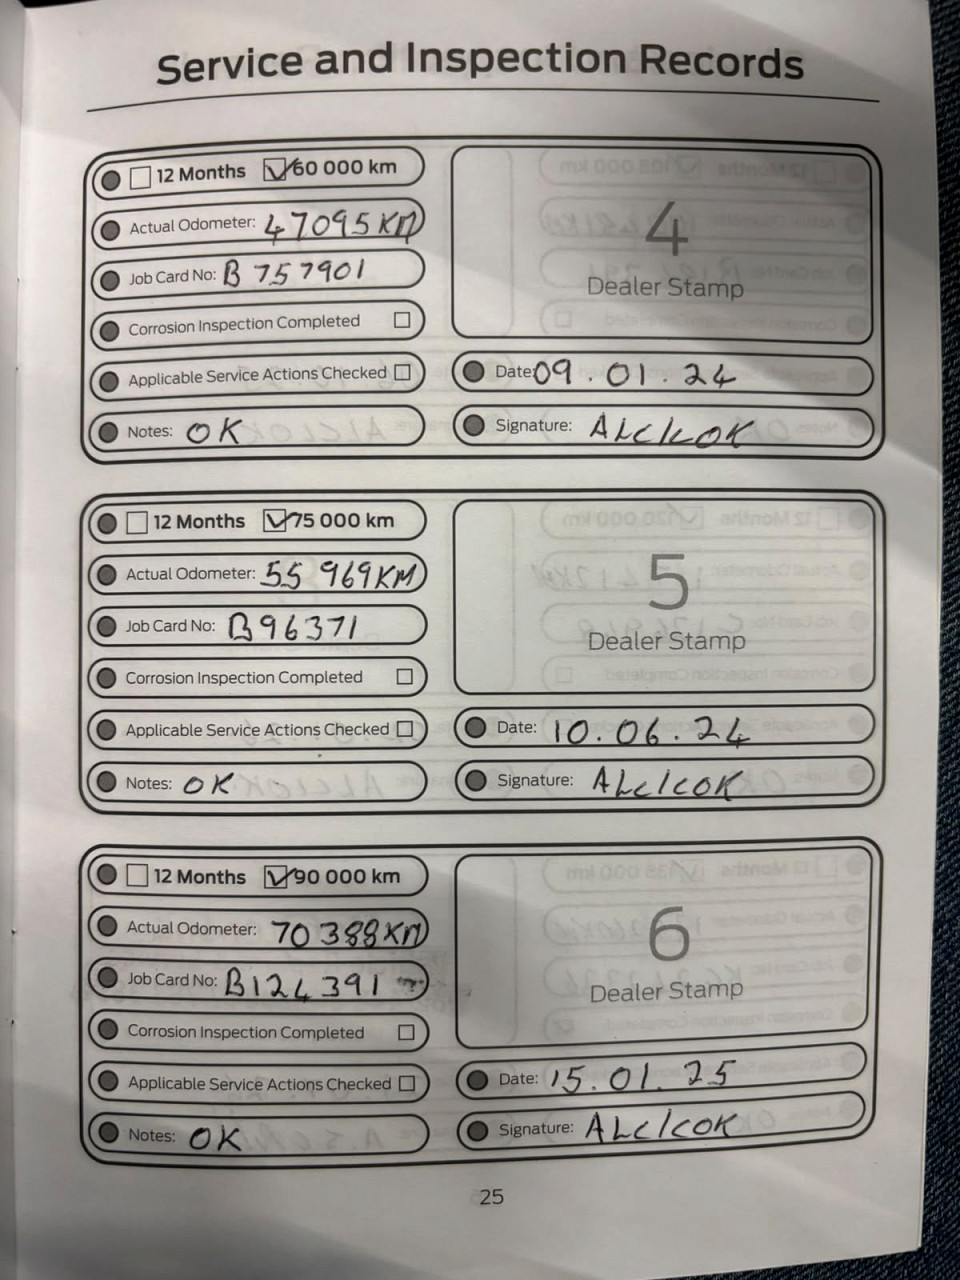 Service and Inspection Records
12 Months 60 000 km
Actual Odometer: 47095 KM
Job Card No: B 757901
Corrosion Inspection Completed
Applicable Service Actions Checked
Notes: OK
4
Dealer Stamp
Date: 09.01.24
Signature:
12 Months 75 000 km
Actual Odometer: 55 969KM
Job Card No: B96371
Corrosion Inspection Completed
Applicable Service Actions Checked
Notes: OK
5
Dealer Stamp
Date: 10.06.24
Signature:
12 Months 90 000 km
Actual Odometer: 70388KM
Job Card No: B124391
Corrosion Inspection Completed
Applicable Service Actions Checked
Notes: OK
6
Dealer Stamp
Date: 15.01.25
Signature:
25